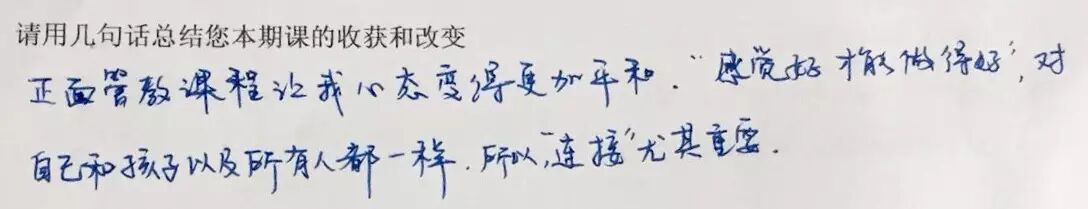 请用几句话总结您本期课的收获和改变
正面管教课程让我心态变得更加平和.“感觉好才能做得好”,对
自己和孩子以及所有人都一样.所以,“连接”尤其重要.